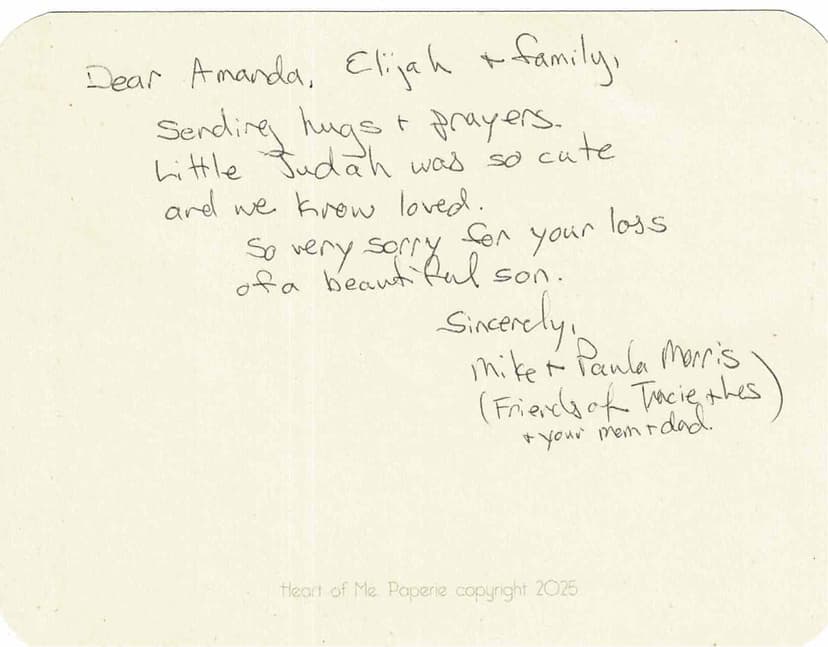 Dear Amanda, Elijah + family,
Sending hugs + prayers.
Little Judah was so cute
and we know loved.
So very sorry for your loss
of a beautiful son.
Sincerely,
Mike + Paula Morris
(Friends of Tracie + Les
+ your mom + dad.)
Heart of Me Paperie copyright 2025